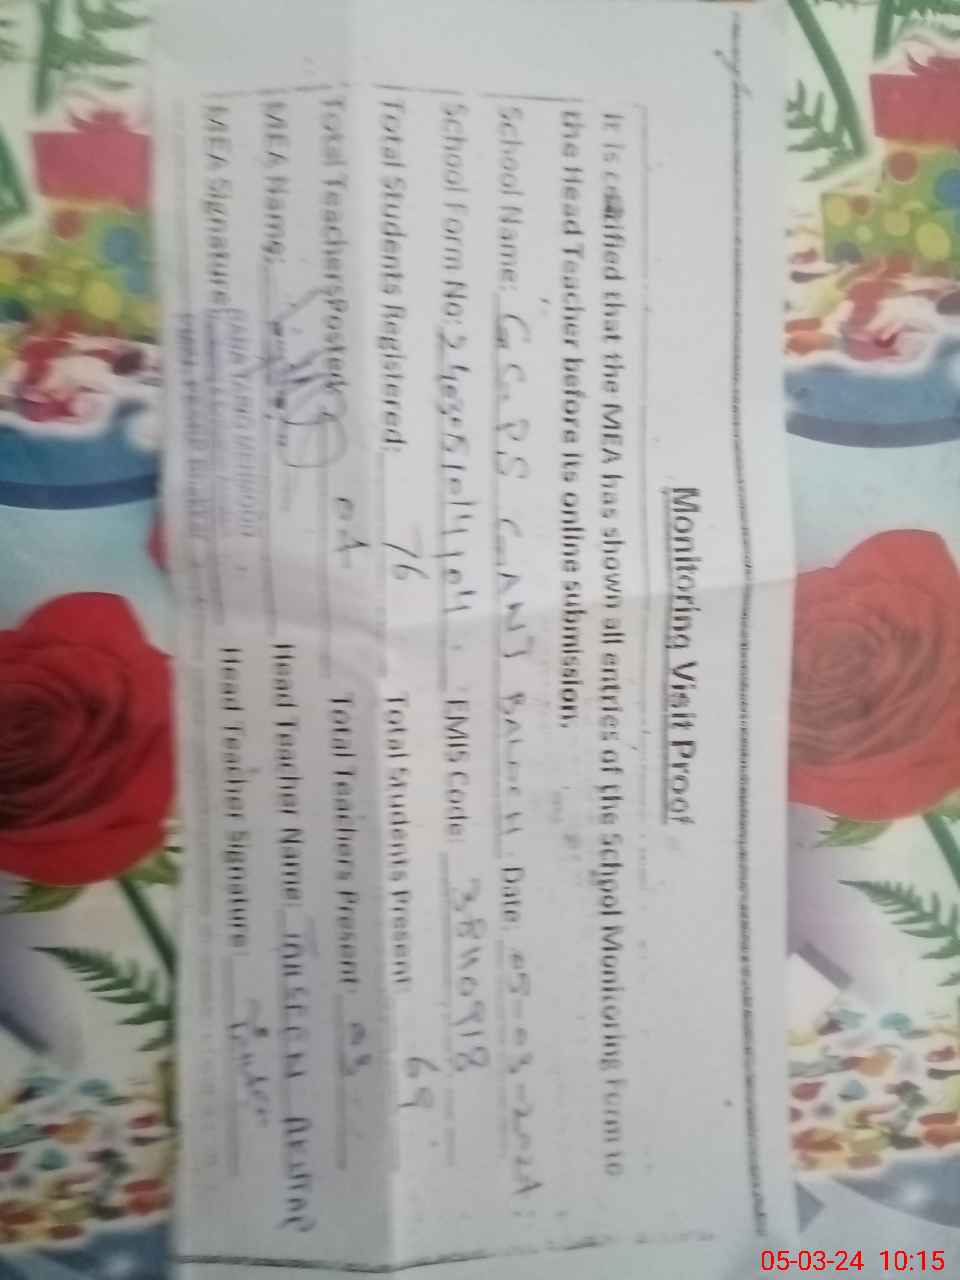 Monitoring Visit Proof
It is certified that the MEA has shown all entries of the School Monitoring Form to
the Head Teacher before its online submission.
School Name: GGPS GANJ BALOCH Date: 05-03-2024
School Form No: EMIS Code: 38110918
Total Students Registered: 76 Total Students Present: 69
Total Teachers Posted 04 Total Teachers Present: 03
MEA Name: Head Teacher Name: TAHSEEM AKHTAR
MEA Signature Head Teacher Signature:
RANA TARIQ MEHMOOD
05-03-24 10:15